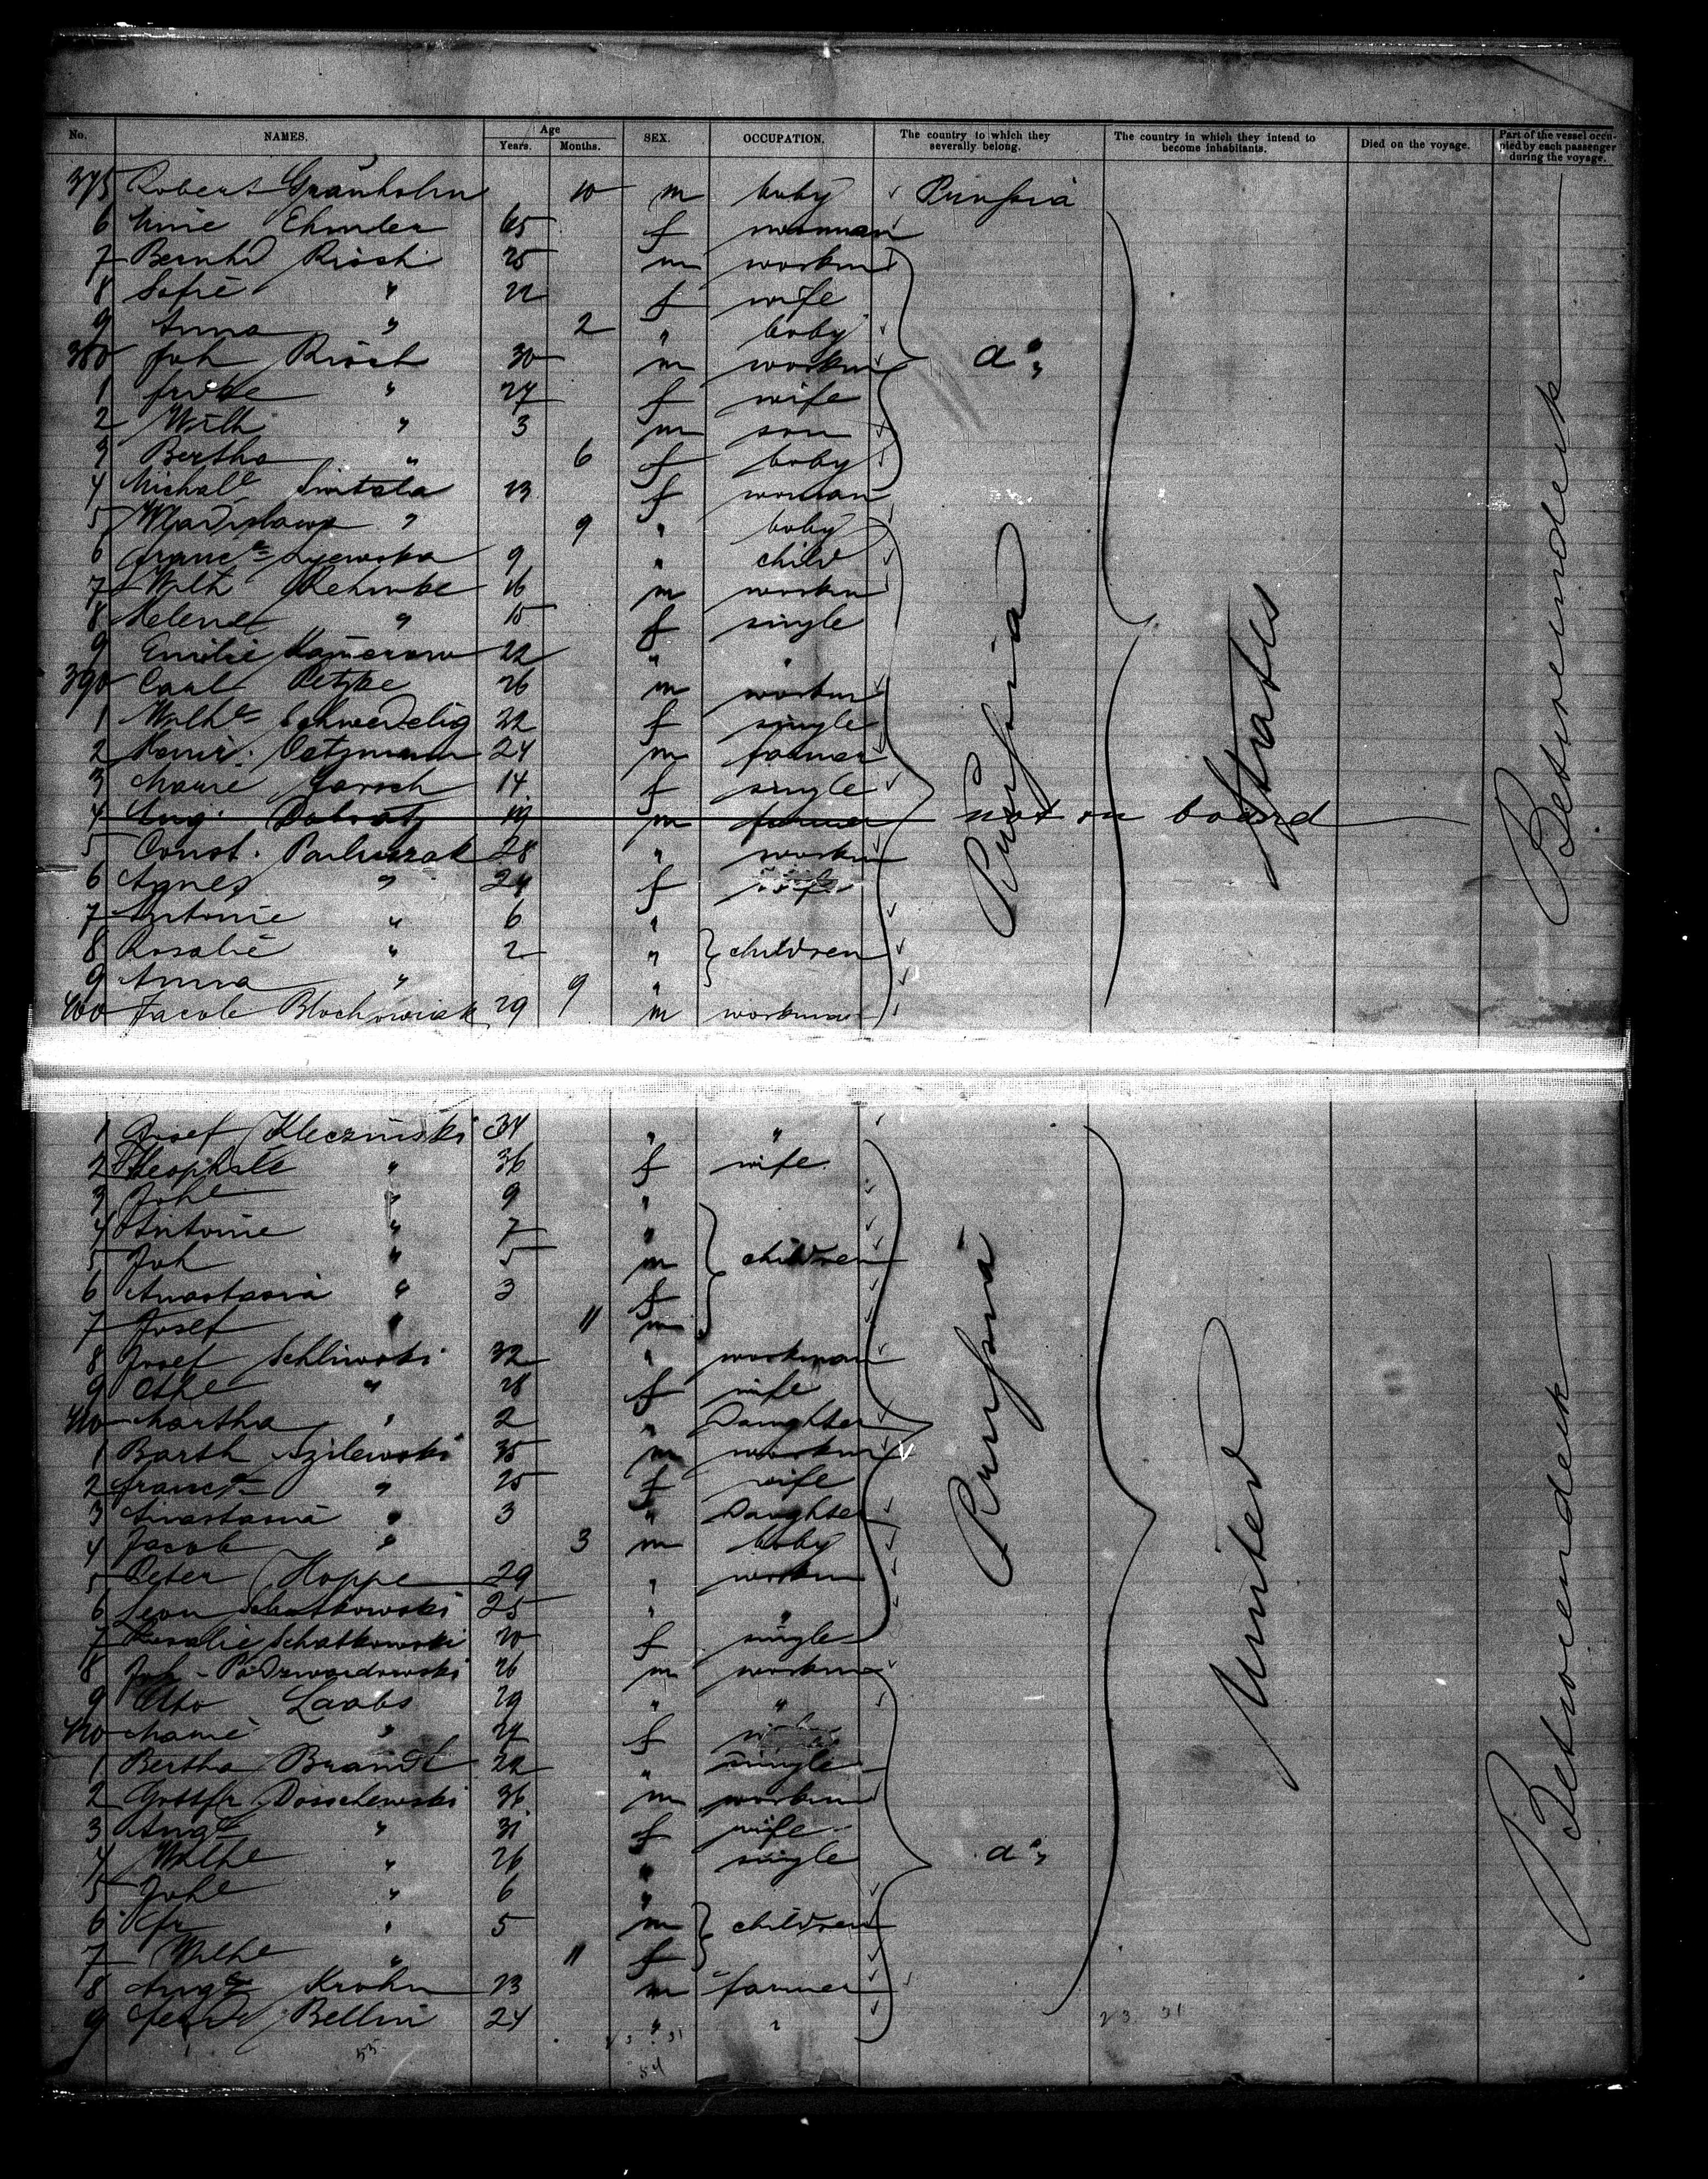 No. NAMES. Age Years. Months. SEX. OCCUPATION. The country to which they severally belong. The country in which they intend to become inhabitants. Died on the voyage. Part of the vessel occupied by each passenger during the voyage.
375 Robert Granholm 10 m baby Prussia
6 65 f woman
7 Bernhd Risch 25 m workm
8 Sofie " 22 f wife
9 Anna " 2 " baby
380 Joh Risch 30 m workm do
1 " 27 f wife
2 Wilh " 3 m son
3 Bertha " 6 f baby
4 23 f woman
5 Wladislawa " 9 " baby
6 9 " child
7 Wilh 16 m workm
8 Helene " 15 f single
9 Emilie 22 " "
390 Carl Petzke 26 m workm
1 Wilhe 22 f single
2 24 m farmer
3 Marie 14 f single
4 Aug. 19 m farmer not on board
5 Const. 28 " workm
6 Agnes " 24 f wife
7 Antonie " 6 "
8 Rosalie " 2 " children
9 Anna " 9 "
400 Jacob Blochowiak 29 m workman
Prussia
States
Betweendeck
1 Josef Kleczinski 34 " "
2 " 36 f wife
3 Johe " 9 "
4 Antonie " 7 "
5 Joh " 5 m children
6 Anastasia " 3 f
7 Josef " 11 m
8 Josef Schliwski 32 " workman
9 " 28 f wife
410 Martha " 2 " Daughter
1 Barth Szilewski 35 m workm
2 " 25 f wife
3 Anastasia " 3 " Daughter
4 Jacob " 3 m baby
5 Peter Hoppe 29 " workm
6 Leon Schatkowski 25 " "
7 Rosalie Schatkowski 20 f single
8 Joh. 26 m workm
9 Otto Laabs 29 " "
420 Marie " 27 f
1 Bertha Brandt 22 " single
2 Gottfr Dosschewski 36 m workm
3 Auge " 31 f wife
4 Wilhe " 26 " single do
5 Johe " 6 "
6 " 5 m children
7 Wilhe " 11 f
8 Krohn 23 m farmer
9 Ferd Bellin 24 " "
Prussia
United
Betweendeck
53
54
23 31